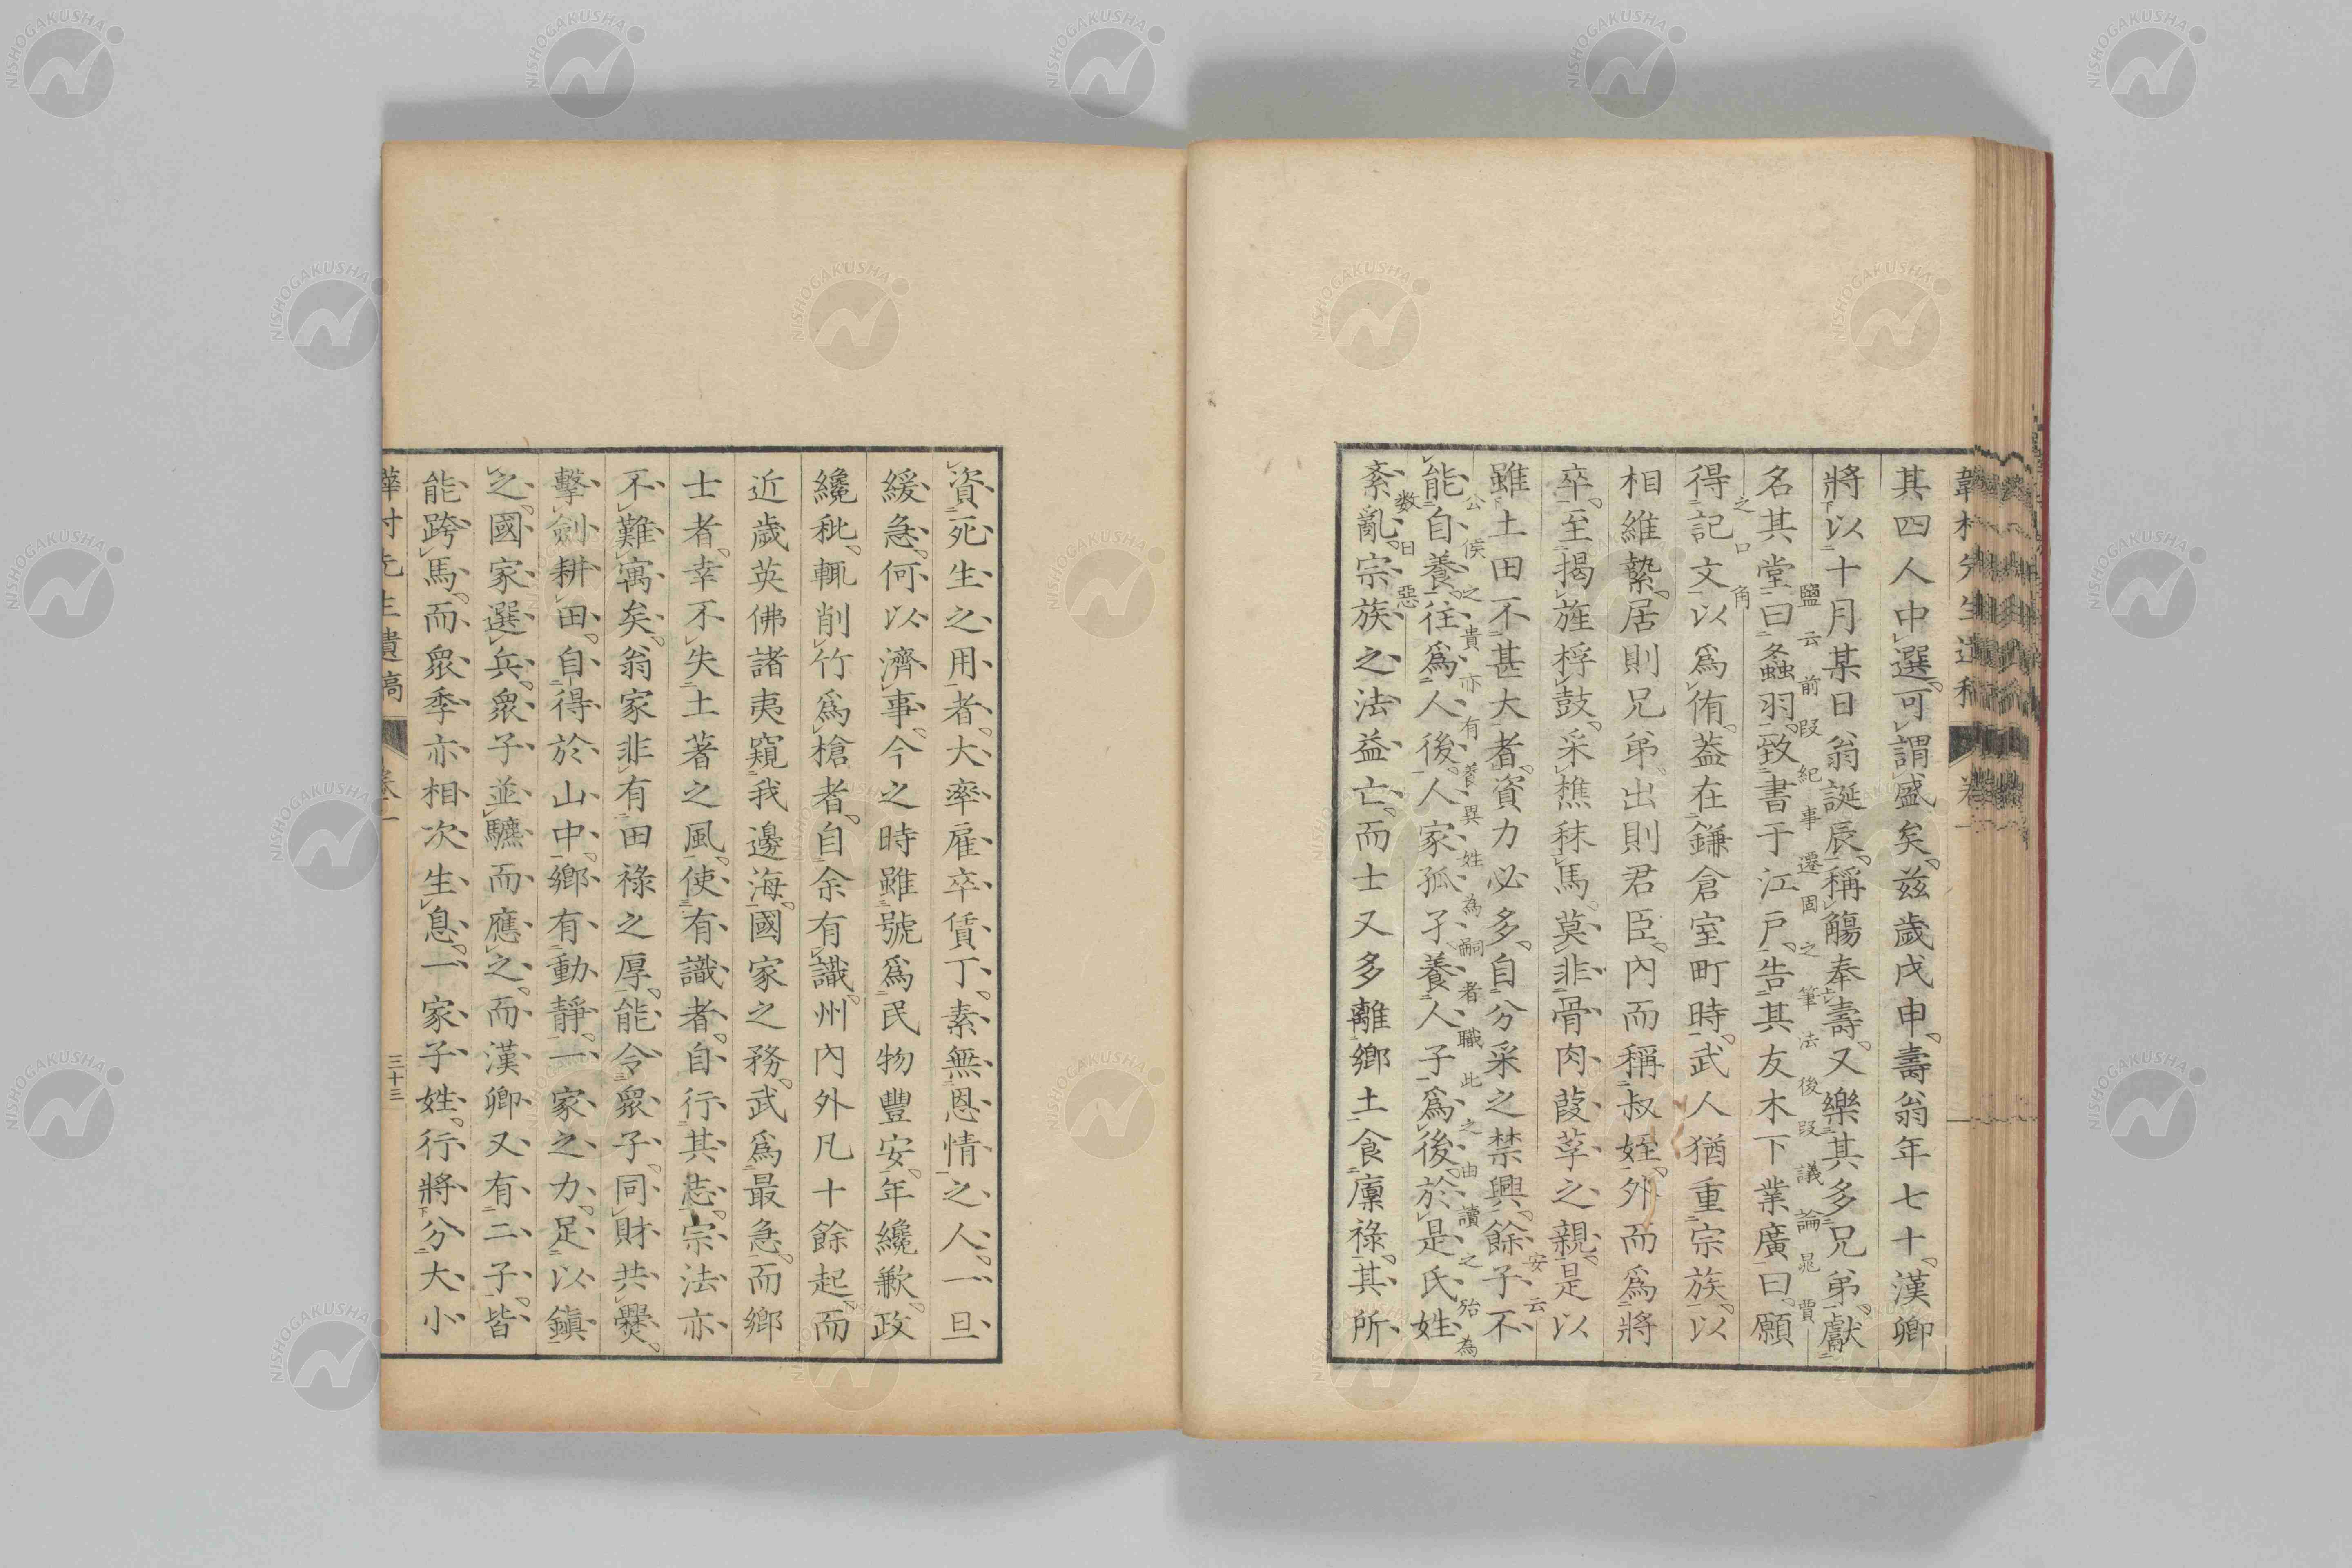 其四人中選可謂盛矣茲歲戊申壽翁年七十漢卿
將以十月某日翁誕辰稱觴奉壽又樂其多兄弟獻
鹽云前段紀事遷固之筆法後段議論晁賈
名其堂曰螽羽致書于江戶告其友木下業廣曰願
之口角
得記文以爲侑蓋在鎌倉室町時武人猶重宗族以
相維縶居則兄弟出則君臣內而稱叔姪外而爲將
卒至揭旌桴鼓采樵秣馬莫非骨肉葭莩之親是以
安云
雖土田不甚大者資力必多自分采之禁興餘子不
公侯之貴亦有養異姓為嗣者職此之由讀之殆為
能自養往爲人後人家孤子養人子爲後於是氏姓
数日惡
紊亂宗族之法益亡而士又多離鄉土食廩祿其所
資死生之用者大率雇卒賃丁素無恩情之人一旦
緩急何以濟事今之時雖號爲民物豐安年纔歉政
纔秕輒削竹爲槍者自余有識州內外凡十餘起而
近歲英佛諸夷窺我邊海國家之務武爲最急而鄉
士者幸不失土著之風使有識者自行其志宗法亦
不難寓矣翁家非有田祿之厚能令眾子同財共爨
擊劍耕田自得於山中鄉有動靜一家之力足以鎮
之國家選兵眾子並驪而應之而漢卿又有二子皆
能跨馬而眾季亦相次生息一家子姓行將分大小
三十三